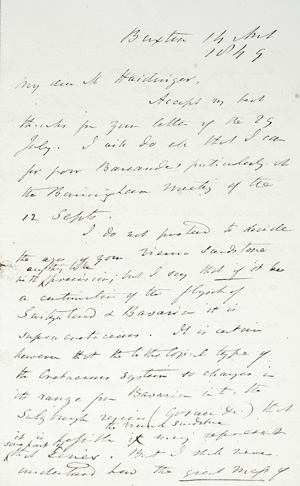 Buxton 14 Aut
1849
My dear M Haidinger,
Accept my best
thanks for your letter of the 29
July. I will do all that I can
for poor Barrande, particularly at
the Birmingham Meeting of the
12 Septr.
I do not pretend to decide
the age of your Vienna Sandstone
with anything like precision; but I say that if it be
a continuation of the flysch of
Switzerland & Bavaria it is
supracretaceous. It is certain
however that the lithological type of
the Cretaceous System so changes in
its range from Bavaria into the
Salzburgh region (Gosau &c) that
it is possible the Vienna Sandstone may represent
some part of that Series. But I shall never
understand how the great mass of